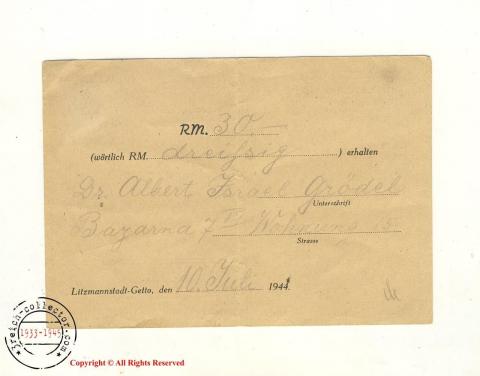 RM. 30.–
(wörtlich RM. dreißig ) erhalten
Dr. Albert Israel Grödel
Unterschrift
Bazarna 7 Wohnung 5
Strasse
Litzmannstadt-Getto, den 10. Juli 1944
3reich-collector.com
1933-1945
Copyright © All Rights Reserved